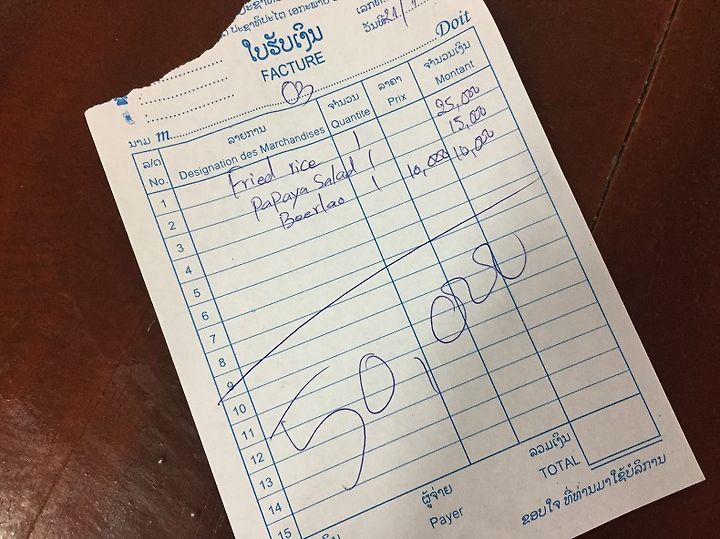 ປະຊາທິປະໄຕ ເອກະພາບ
ເລກທີ
ວັນທີ 21/1
ໃບຮັບເງິນ
FACTURE
Doit
03
ນາມ m
ລ/ດ ລາຍການ ຈໍານວນ ລາຄາ ຈໍານວນເງິນ
No. Designation des Marchandises Quantite Prix Montant
1 Fried rice 1 25,000
2 Papaya Salad 1 15,000
3 Beerlao 1 10,000 10,000
4
5
6
7
8
9
10
11
12
13
14
15
50,000
ລວມເງິນ
TOTAL
ຜູ້ຈ່າຍ
Payer
ຂອບໃຈ ທີ່ທ່ານມາໃຊ້ບໍລິການ